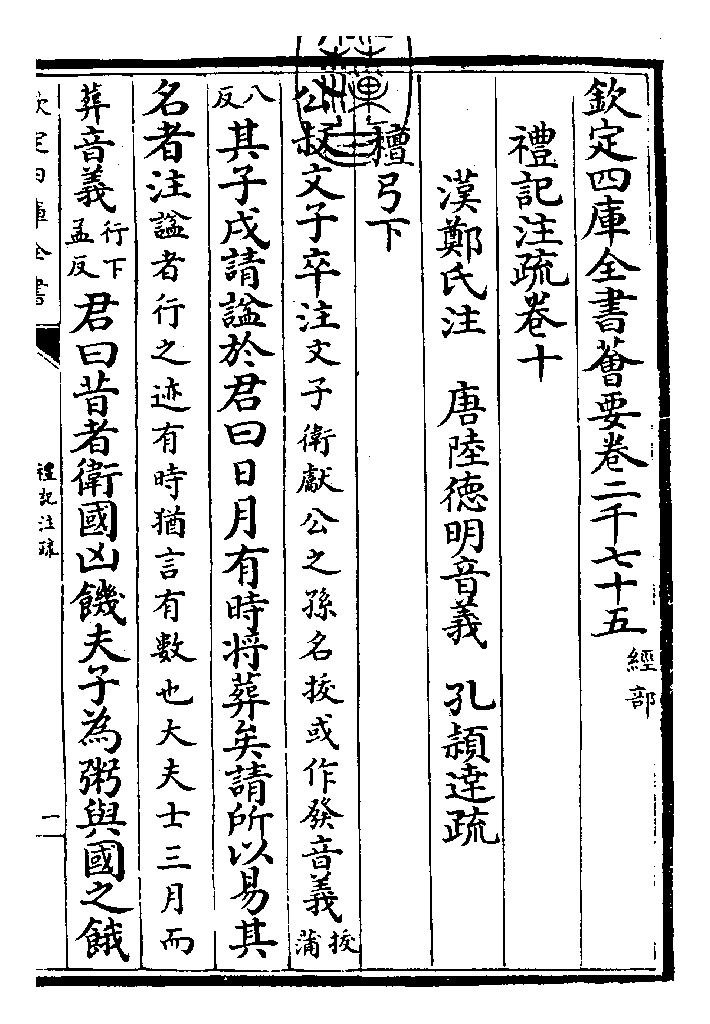 欽定四庫全書薈要卷二千七十五 經部
禮記注疏卷十
漢鄭氏注 唐陸德明音義 孔穎達疏
檀弓下
公叔文子卒注文子衛獻公之孫名拔或作發音義拔蒲
八反其子戌請諡於君曰日月有時將葬矣請所以易其
名者注諡者行之迹有時猶言有數也大夫士三月而
葬音義行下孟反君曰昔者衛國凶饑夫子為粥與國之餓
欽定四庫全書
禮記注疏
一